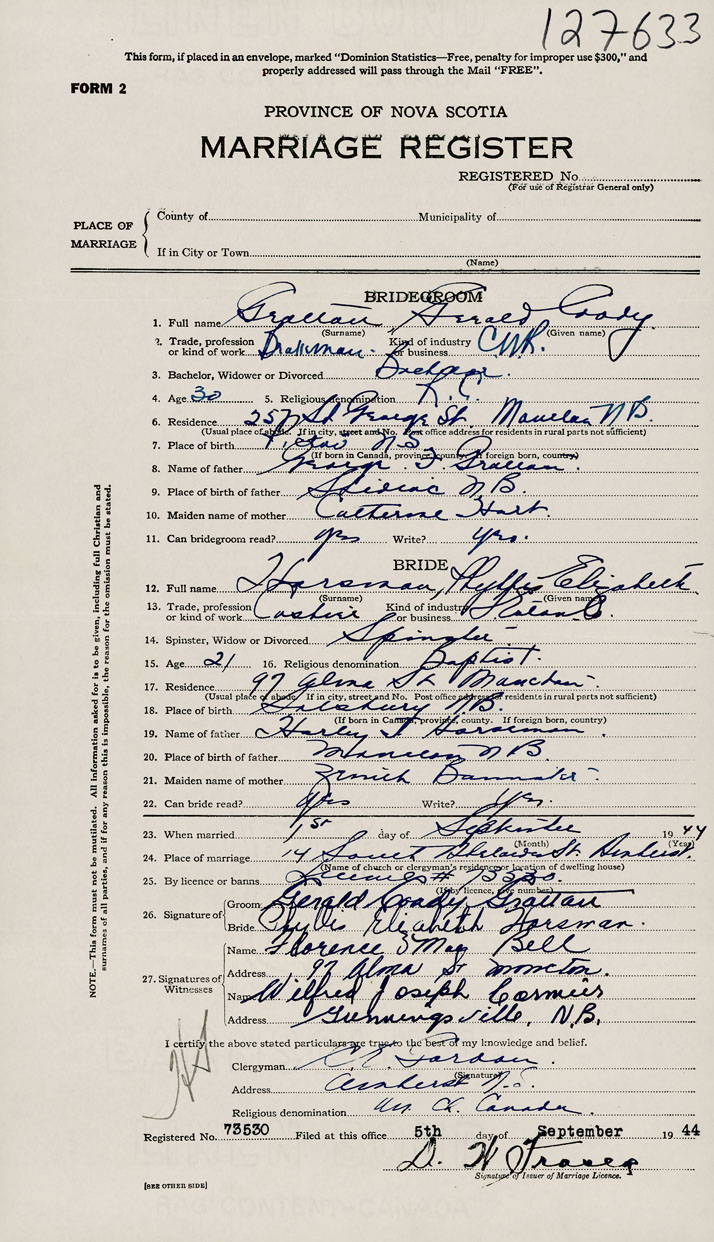 127633
This form, if placed in an envelope, marked "Dominion Statistics—Free, penalty for improper use $300," and
properly addressed will pass through the Mail "FREE".
FORM 2
PROVINCE OF NOVA SCOTIA
MARRIAGE REGISTER
REGISTERED No.
(For use of Registrar General only)
PLACE OF MARRIAGE
County of Municipality of
If in City or Town
(Name)
BRIDEGROOM
1. Full name Grattan, Gerald Coady
(Surname) (Given name)
2. Trade, profession or kind of work Kind of industry or business C.N.R.
3. Bachelor, Widower or Divorced Bachelor
4. Age 30 5. Religious denomination R.C.
6. Residence 257 St George St. Moncton N.B.
(Usual place of abode. If in city, street and No. Post office address for residents in rural parts not sufficient)
7. Place of birth Pictou N.S.
(If born in Canada, province, county. If foreign born, country)
8. Name of father George Grattan
9. Place of birth of father Shediac N.B.
10. Maiden name of mother Catherine Hart
11. Can bridegroom read? yes Write? yes.
BRIDE
12. Full name Horsman, Phyllis Elizabeth
(Surname) (Given name)
13. Trade, profession or kind of work Cashier Kind of industry or business
14. Spinster, Widow or Divorced Spinster
15. Age 21 16. Religious denomination Baptist.
17. Residence 97 Alma St Moncton
(Usual place of abode. If in city, street and No. Post office address for residents in rural parts not sufficient)
18. Place of birth Salsbury N.B.
(If born in Canada, province, county. If foreign born, country)
19. Name of father Harley Horsman
20. Place of birth of father Moncton N.B.
21. Maiden name of mother Bannister
22. Can bride read? yes Write? yes.
23. When married 1st day of September 1944
(Month) (Year)
24. Place of marriage 14 St Amherst.
(Name of church or clergyman's residence or location of dwelling house)
25. By licence or banns License #
(If by licence, give number)
26. Signature of
Groom Gerald Coady Grattan
Bride Phyllis Elizabeth Horsman.
27. Signatures of Witnesses
Name Florence May Bell
Address 97 Alma St Moncton.
Name Wilfred Joseph Cormier
Address Gunningsville, N.B.
I certify the above stated particulars are true to the best of my knowledge and belief.
Clergyman Gordon
(Signature)
Address Amherst N.S.
Religious denomination Un. Ch. Canada.
Registered No. 73530 Filed at this office 5th day of September 1944
D. W Fraser
Signature of Issuer of Marriage Licence.
[SEE OTHER SIDE]
NOTE.—This form must not be mutilated. All information asked for is to be given, including full Christian and
surnames of all parties, and if for any reason this is impossible, the reason for the omission must be stated.